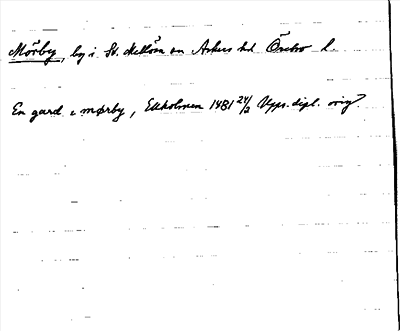 Mörby, by i St. Mellösa sn Askers hd Örebro l.
En gard i mørby, Ekholmen 1481 24/2 Upps. dipl. orig.